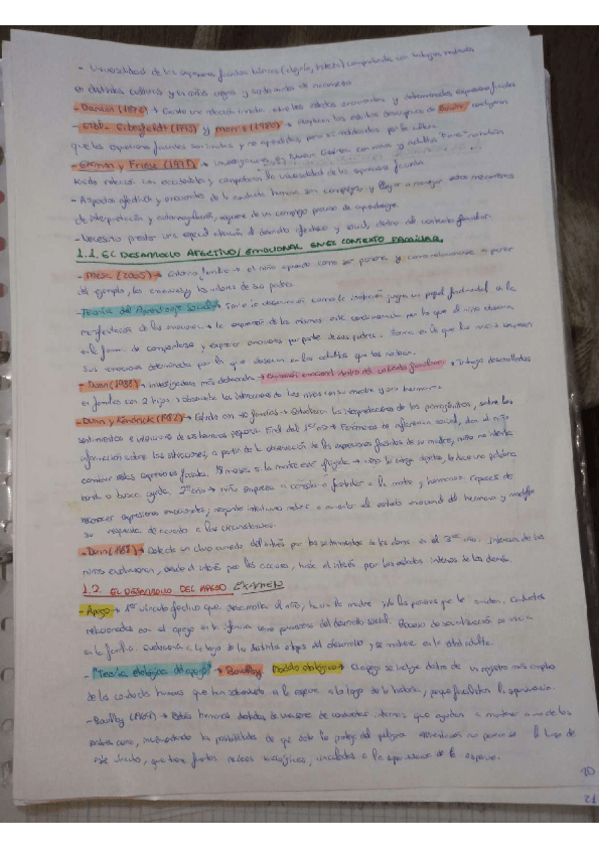 - Universalidad de las expresiones faciales básicas (alegría, tristeza) comprobadas con trabajos realizados
en distintas culturas y en niños ciegos y sordos antes de nacimiento
- Darwin (1872) → Existe una relación innata entre los estados emocionales y determinadas expresiones faciales
- Eibl-Eibesfeldt (1973) y Morris (1980) → Ampliaron los estudios etológicos de Darwin, concluyeron
que las expresiones faciales son innatas y no aprendidas, pero sí moldeadas por la cultura.
- Ekman y Friesen (1971) → Investigaciones en Nueva Guinea con niños y adultos "Fore" no habían
tenido relación con occidentales y comprobaron la universalidad de las expresiones faciales
- Aspectos afectivos y emocionales de la conducta humana son complejos y llegar a manejar estos mecanismos
de interpretación y autorregulación, requiere de un complejo proceso de aprendizaje.
- Necesario prestar una especial atención al desarrollo afectivo y social, dentro del contexto familiar.
1.1. EL DESARROLLO AFECTIVO/EMOCIONAL EN EL CONTEXTO FAMILIAR.
(2005) → Entorno familiar → el niño aprende como ser persona y como relacionarse a partir
del ejemplo, las creencias y los valores de sus padres.
- Teoría del Aprendizaje Social → Tanto la observación como la imitación juegan un papel fundamental en la
manifestación de las emociones → la expresión de las mismas está condicionada por lo que el niño observa
en la forma de comportarse y expresar emociones por parte de sus padres. Forma en la que los niños expresan
sus emociones determinada por lo que observan en los adultos que les rodean.
- Dunn (1988) → investigadora más destacada → expresión emocional dentro del contexto familiar → Trabajos desarrollados
en familias con 2 hijos → observaba las interacciones de los niños con su madre y sus hermanos.
- Dunn y Kendrick (1982) → Estudio con 40 familias → Estudiaron las interpretaciones de los primogénitos, sobre los
sentimientos e intenciones de sus hermanos pequeños. Final del 1er año → Fenómenos de referencia social, dan al niño
información sobre las situaciones, a partir de la observación de las expresiones faciales de su madre, niño no intenta
cambiar estas expresiones faciales. 18 meses si la madre está afligida → niño le carga objetos, le dice una palabra
tierna o busca ayuda. 2º año → niño empieza a consolar o fastidiar a la madre y hermanos. Capaces de
reconocer expresiones emocionales; responde intentando reducir o aumentar el estado emocional del hermano y modifica
su respuesta de acuerdo a las circunstancias.
- Dunn (1988) → Data de un claro aumento del interés por los sentimientos de los demás en el 3er año. Intereses de los
niños evolucionan, desde el interés por las acciones, hacia el interés por los estados internos de los demás.
1.2. EL DESARROLLO DEL APEGO EXAMEN
- Apego → 1er vínculo afectivo que desarrolla el niño, hacia la madre y/o las personas que le cuidan. Conductas
relacionadas con el apego en la infancia como precursoras del desarrollo social. Proceso de socialización se inicia
en la familia. Evoluciona a lo largo de las distintas etapas del desarrollo y se mantiene en la edad adulta.
- "Teoría etológica del apego" → Bowlby Modelo etológico → El apego se incluye dentro de un registro más amplio
de las conductas humanas que han sobrevivido a la especie a lo largo de la historia, porque facilitaban la supervivencia.
- Bowlby (1969) → Bebés humanos dotados de una serie de conductas internas que ayudan a mantener a uno de los
padres cerca, incrementando las posibilidades de que éste los proteja del peligro
este vínculo, que tiene fuertes raíces biológicas, vinculadas a la supervivencia de la especie.